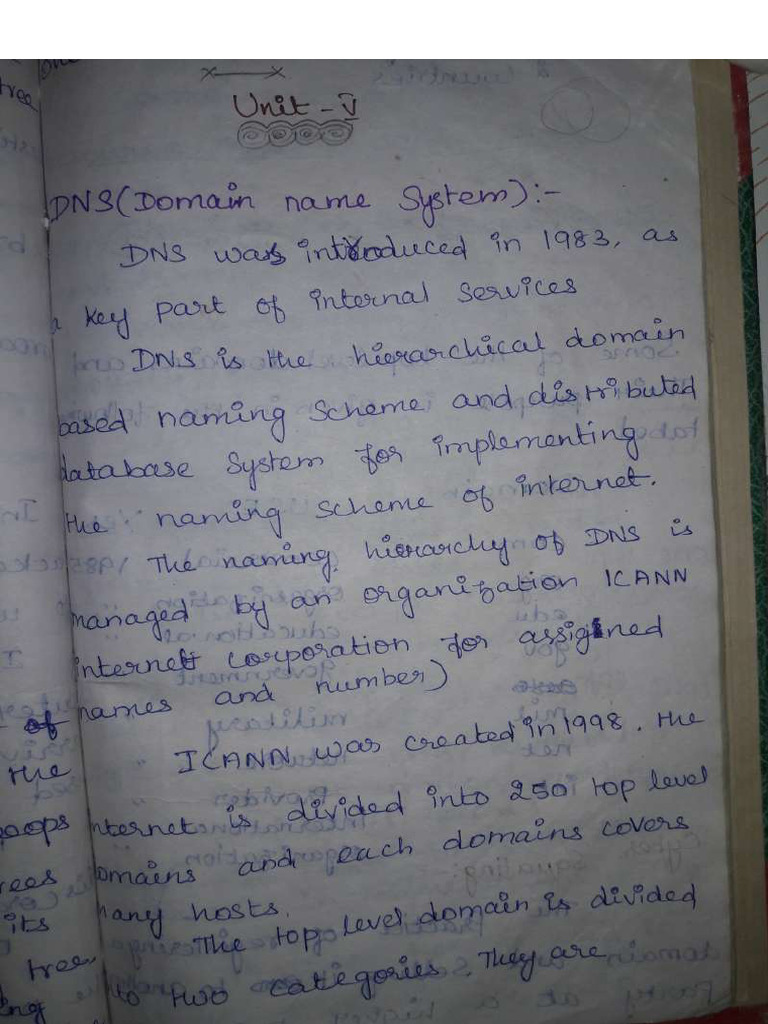 Unit - V
DNS (Domain name System) :-
DNS was introduced in 1983, as
a key part of internal services
DNS is the hierarchical domain
based naming scheme and distributed
database system for implementing
the naming scheme of internet.
The naming hierarchy of DNS is
managed by an organization ICANN
internet corporation for assigned
names and number)
ICANN was created in 1998. the
nternet is divided into 250 top level
omains and each domains covers
many hosts.
The top level domain is divided
to two categories. They are
tree
of
the
oops
rees
its
tree
ing